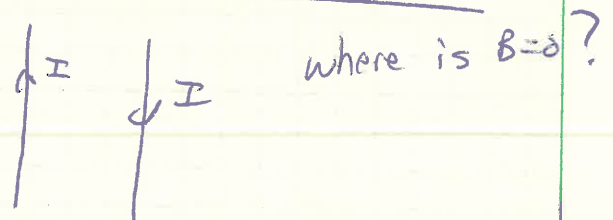 I
I
where is B=0?